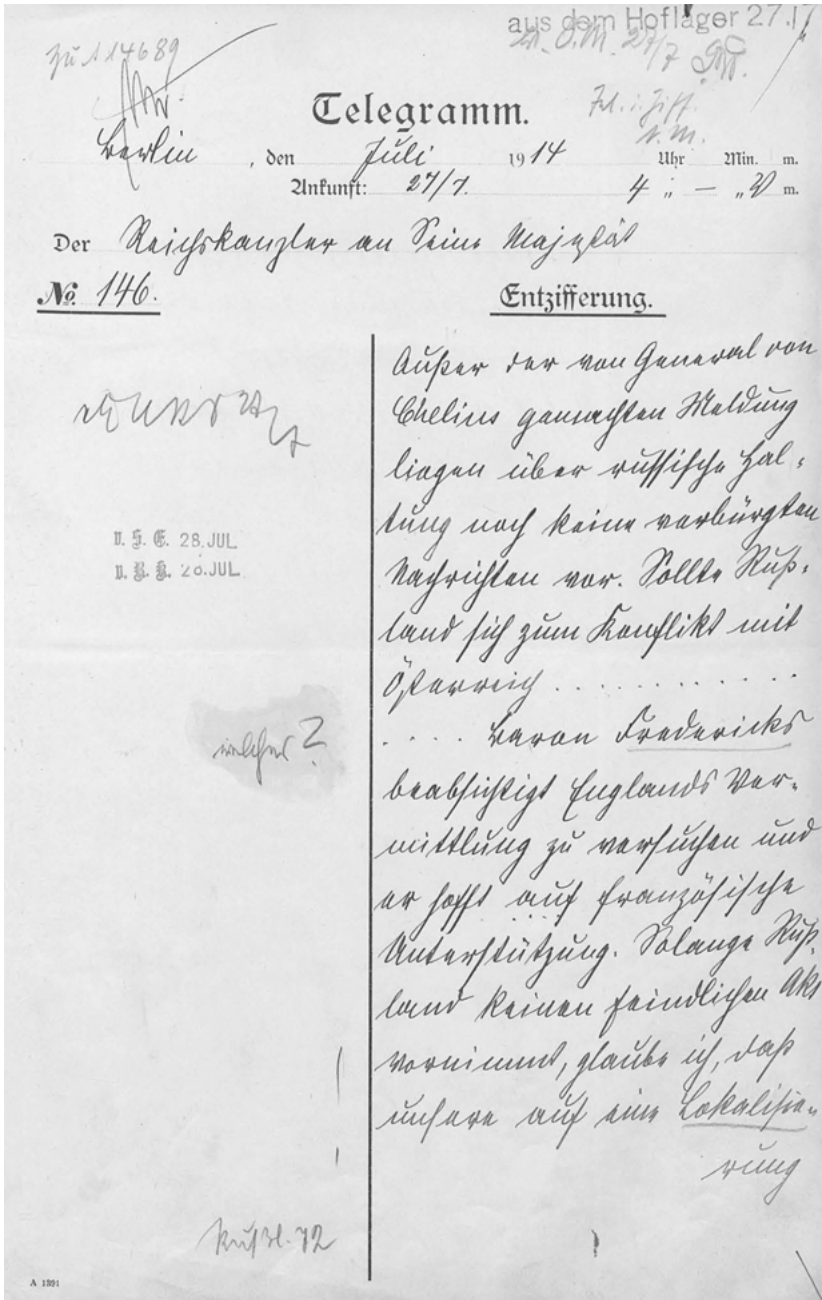 aus dem Hoflager 27.
zu A 14689
Telegramm.
Berlin, den Juli 1914 Uhr Min. m.
Ankunft: 27/7. 4 " — " N m.
Der Reichskanzler an Seine Majestät
No. 146. Entzifferung.
Außer der von General von
Chelius gemachten Meldung
liegen über russische Hal-
tung noch keine verbürgten
Nachrichten vor. Sollte Ruß-
land sich zum Konflikt mit
Österreich . . . . . . . . . . . .
. . . . Baron Fredericks
welcher?
beabsichtigt Englands Ver-
mittlung zu versuchen und
er hofft auf französische
Unterstützung. Solange Ruß-
land keinen feindlichen Akt
vornimmt, glaube ich, daß
unsere auf eine Lokalisie-
rung
v. S. E. 28. JUL
JUL
A 1391